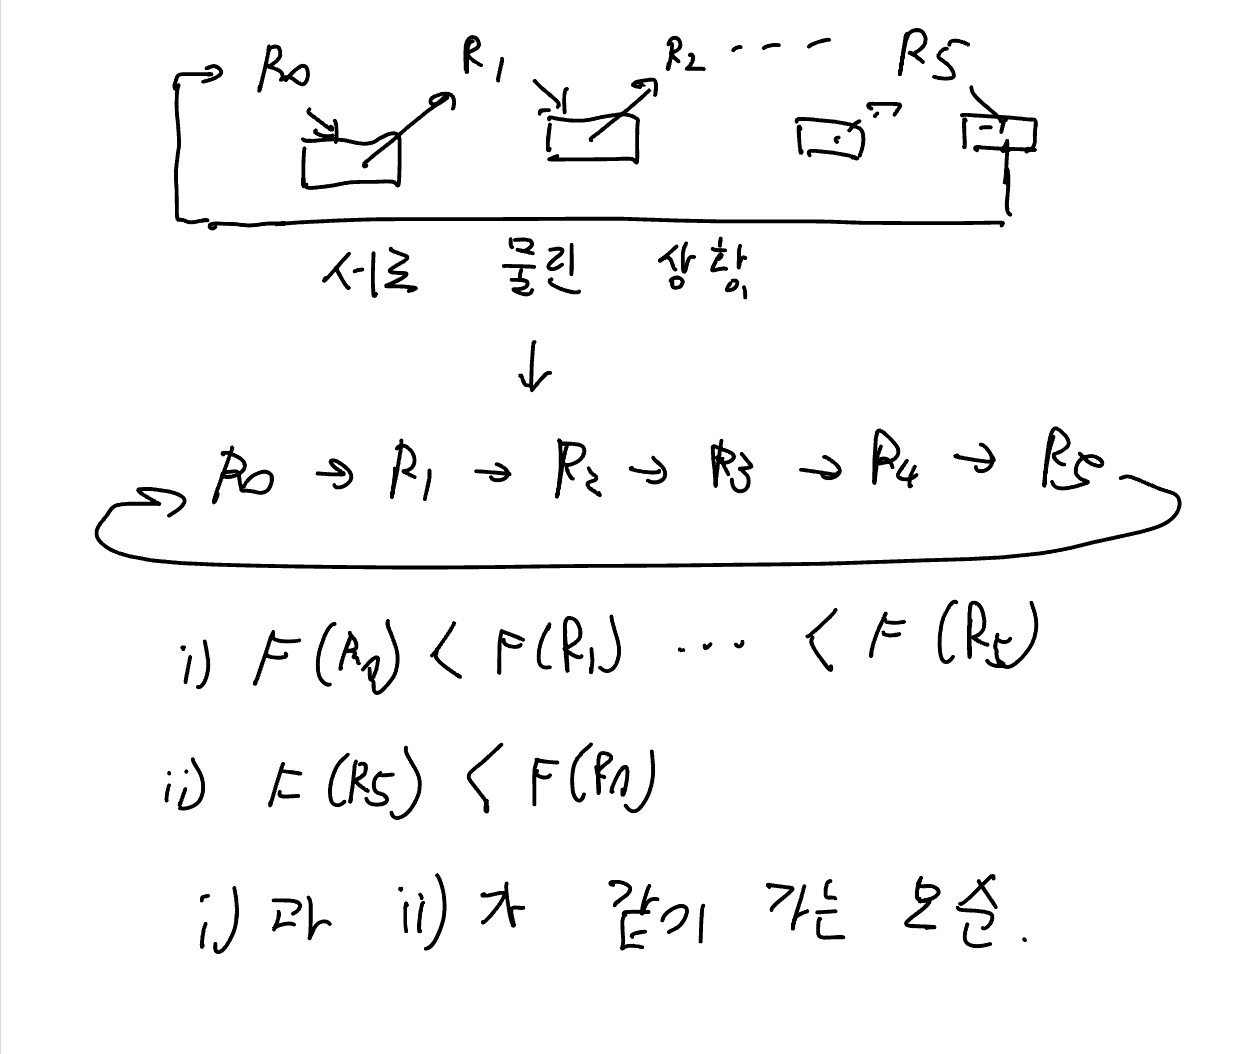 R0 R1 R2 --- R5
서로 물린 상황
↓
R0 → R1 → R2 → R3 → R4 → R5
i) F(R0) < F(R1) ... < F(R5)
ii) F(R5) < F(R0)
i)과 ii)가 같이 가는 모순.